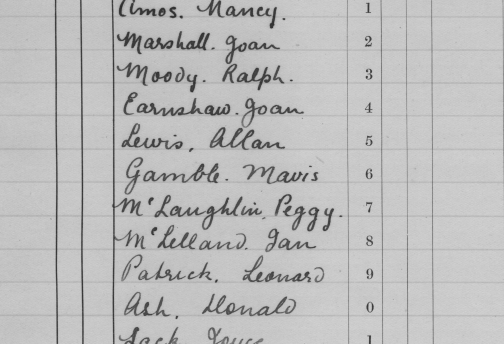 Amos. Nancy. 1
Marshall. Joan 2
Moody. Ralph. 3
Earnshaw. Joan 4
Lewis, Allan 5
Gamble. Mavis 6
McLaughlin, Peggy. 7
McLelland. Ian 8
Patrick, Leonard 9
Ash, Donald 0
Sack Joyce 1